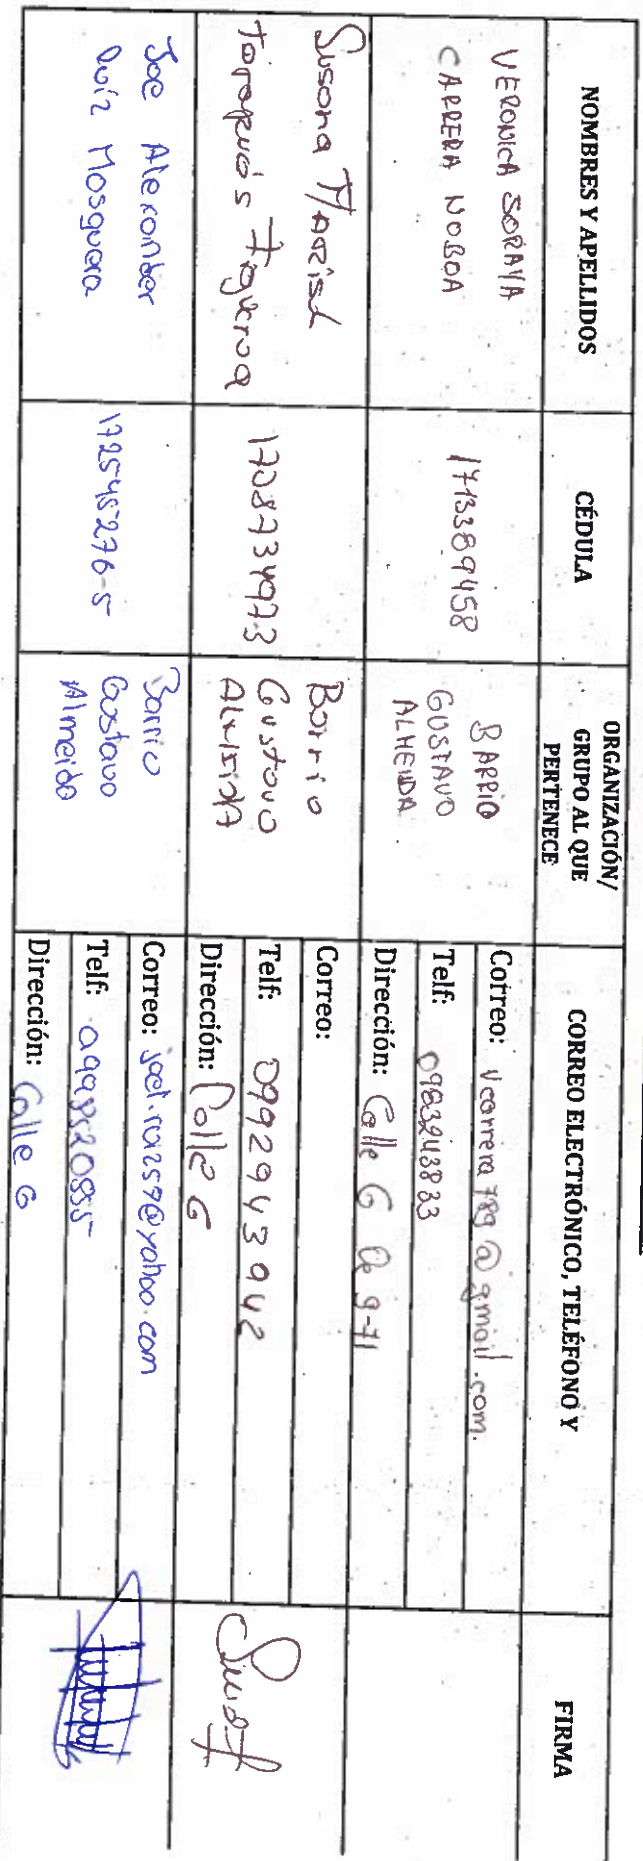 NOMBRES Y APELLIDOS
CÉDULA
ORGANIZACIÓN/
GRUPO AL QUE
PERTENECE
CORREO ELECTRÓNICO, TELÉFONO Y
FIRMA
VERONICA SORAYA
CARRERA NOBOA
1713389458
BARRIO
GUSTAVO
ALMEIDA
Correo: vcarrera789@gmail.com.
Telf: 0983243833
Dirección: Calle G Oe 9-71
Susana Marisol
Figueroa
1708734973
Barrio
Gustavo
Almeida
Correo:
Telf: 0992943942
Dirección: Calle G
Joe Alexander
Ruíz Mosquera
172545276-5
Barrio
Gustavo
Almeida
Correo: @yahoo.com
Telf:
Dirección: Calle G